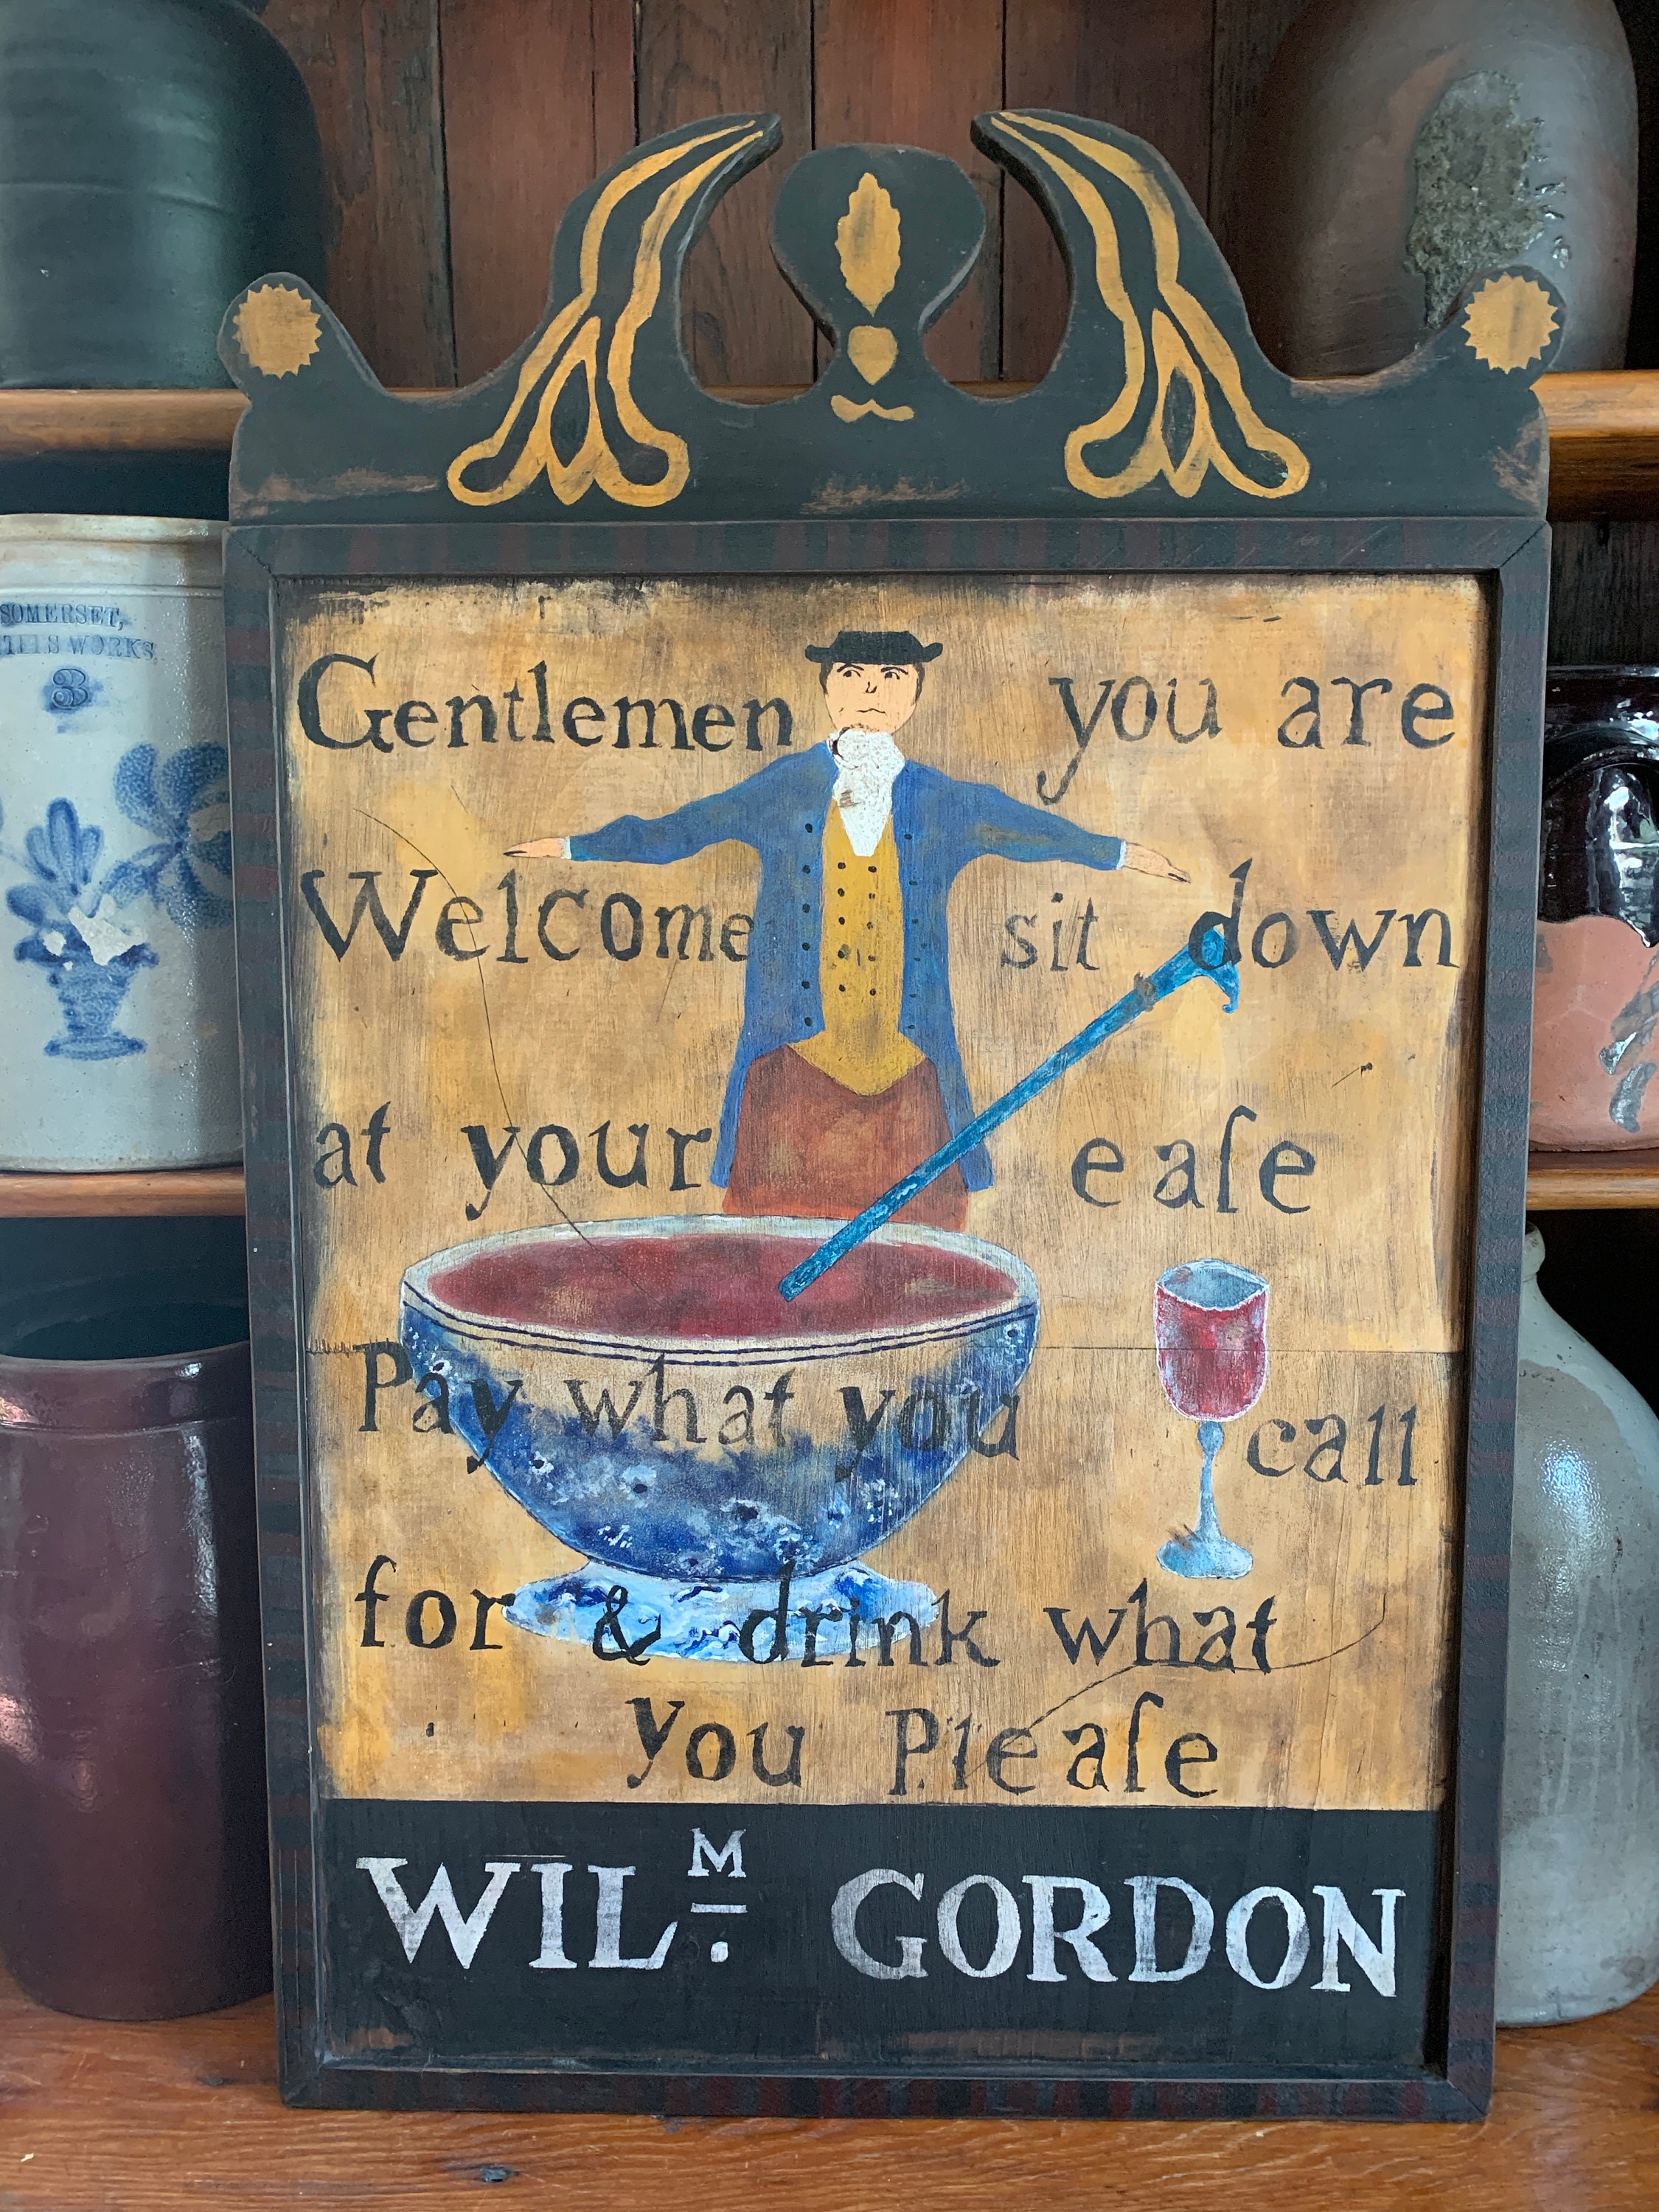 SOMERSET,
WORKS
3
Gentlemen you are
Welcome sit down
at your eaſe
Pay what you call
for & drink what
you Pleaſe
WILᴹ. GORDON